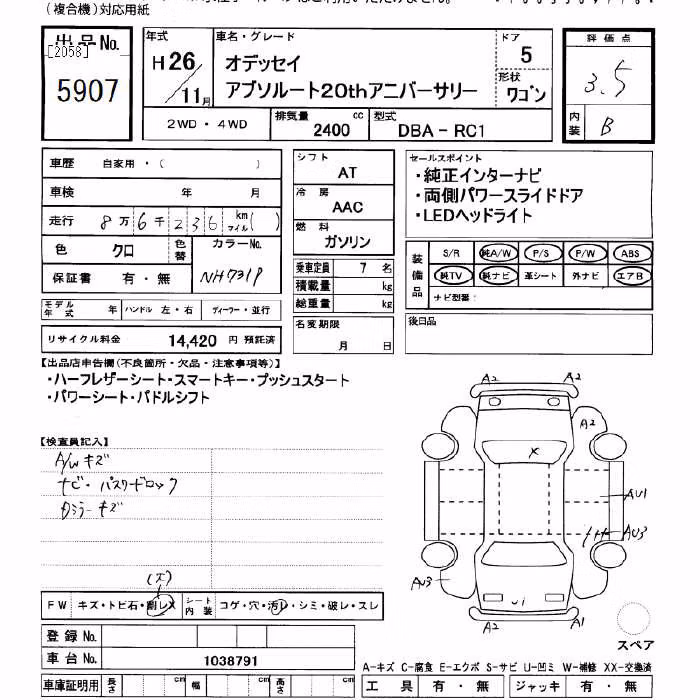 (複合機)対応用紙
出品No.
[2058]
5907
年式
H26/11月
車名・グレード
オデッセイ
アブソルート20thアニバーサリー
ドア
5
形状
ワゴン
評価点
3.5
内装
B
2WD・4WD
排気量
2400 cc
型式
DBA-RC1
車歴 自家用・( )
車検 年 月
走行 8万6千236 km マイル( )
色 クロ
色替
カラーNo.
NH731P
保証書 有・無
モデル年式 年 ハンドル 左・右 ディーラー・並行
リサイクル料金 14,420 円 預託済
シフト
AT
冷房
AAC
燃料
ガソリン
乗車定員 7 名
積載量 kg
総重量 kg
名変期限
月 日
セールスポイント
・純正インターナビ
・両側パワースライドドア
・LEDヘッドライト
装備品
S/R 純A/W P/S P/W ABS
純TV 純ナビ 革シート 外ナビ エアB
ナビ型番:
後日品
【出品店申告欄(不良箇所・欠品・注意事項等)】
・ハーフレザーシート・スマートキー・プッシュスタート
・パワーシート・パドルシフト
【検査員記入】
A/W キズ
ナビ・パスワードロック
Dミラーキズ
FW キズ・トビ石・割レX
シート内装 コゲ・穴・汚レ・シミ・破レ・スレ
登録No.
車台No. 1038791
車庫証明用 長さ cm 幅 cm 高さ cm
A2
A2
A2
X
AU1
AU3
AU3
U1
A2
A1
スペア
A-キズ C-腐食 E-エクボ S-サビ U-凹ミ W-補修 XX-交換済
工具 有・無 ジャッキ 有・無